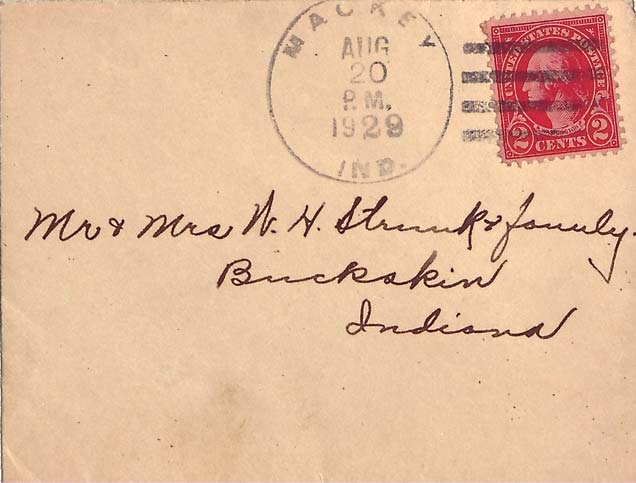 MACKEY
AUG
20
P.M.
1929
IND.
UNITED STATES POSTAGE
2 CENTS 2
Mr & Mrs W. H. Strunk & family.
Buckskin
Indiana